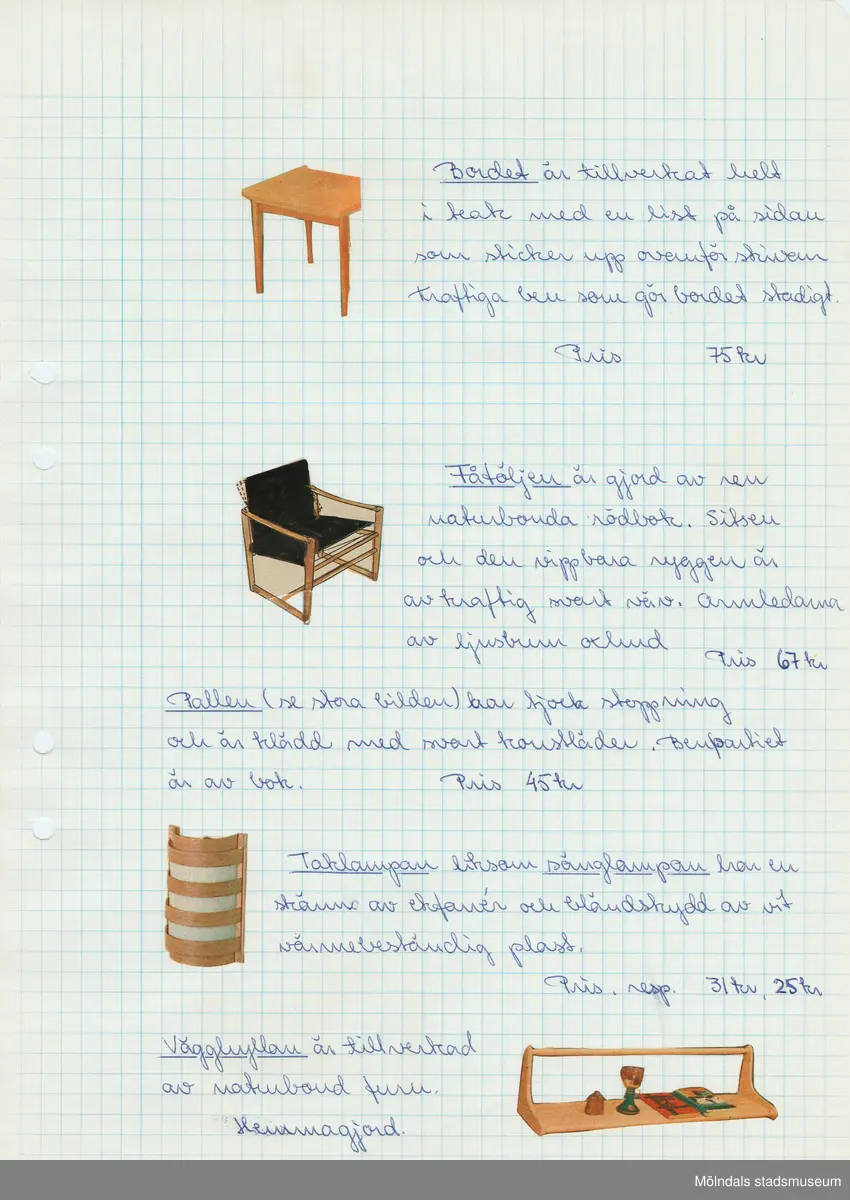 Bordet är tillverkat helt
i teak med en list på sidan
som sticker upp ovanför skivan
kraftiga ben som gör bordet stadigt.
Pris 75 kr
Fåtöljen är gjord av ren
naturbonda rödbok. Sitsen
och den vippbara ryggen är
av kraftig svart väv. Armledarna
av ljusbrun oxhud
Pris 67 kr
Pallen (se stora bilden) har tjock stoppning
och är klädd med svart konstläder. Benpartiet
är av bok. Pris 45 kr
Taklampan liksom sänglampan har en
skärm av ekfanér och bländskydd av vit
värmebeständig plast.
Pris. resp. 31 kr, 25 kr
Vägghyllan är tillverkad
av naturbond furu.
Hemmagjord.
Mölndals stadsmuseum